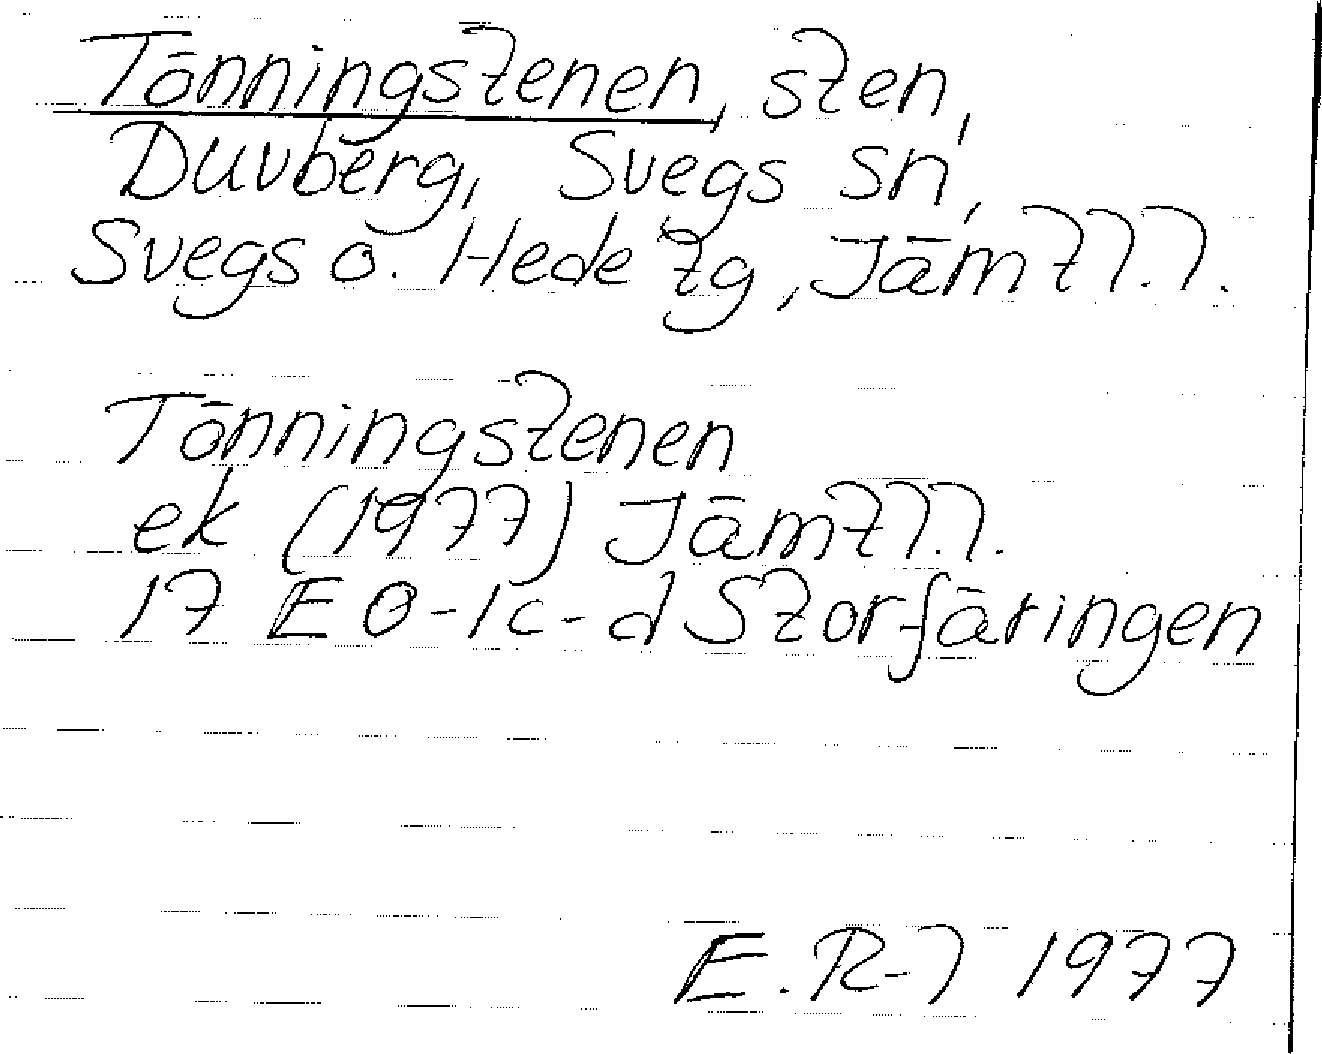 Tönningstenen, sten,
Duvberg, Svegs sn,
Svegs o. Hede tg, Jämtl.l.
Tönningstenen
ek (1977) Jämtl.l.
17 E 0-1c-d Storfäringen
E.R-l 1977